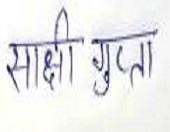 साक्षी गुप्ता